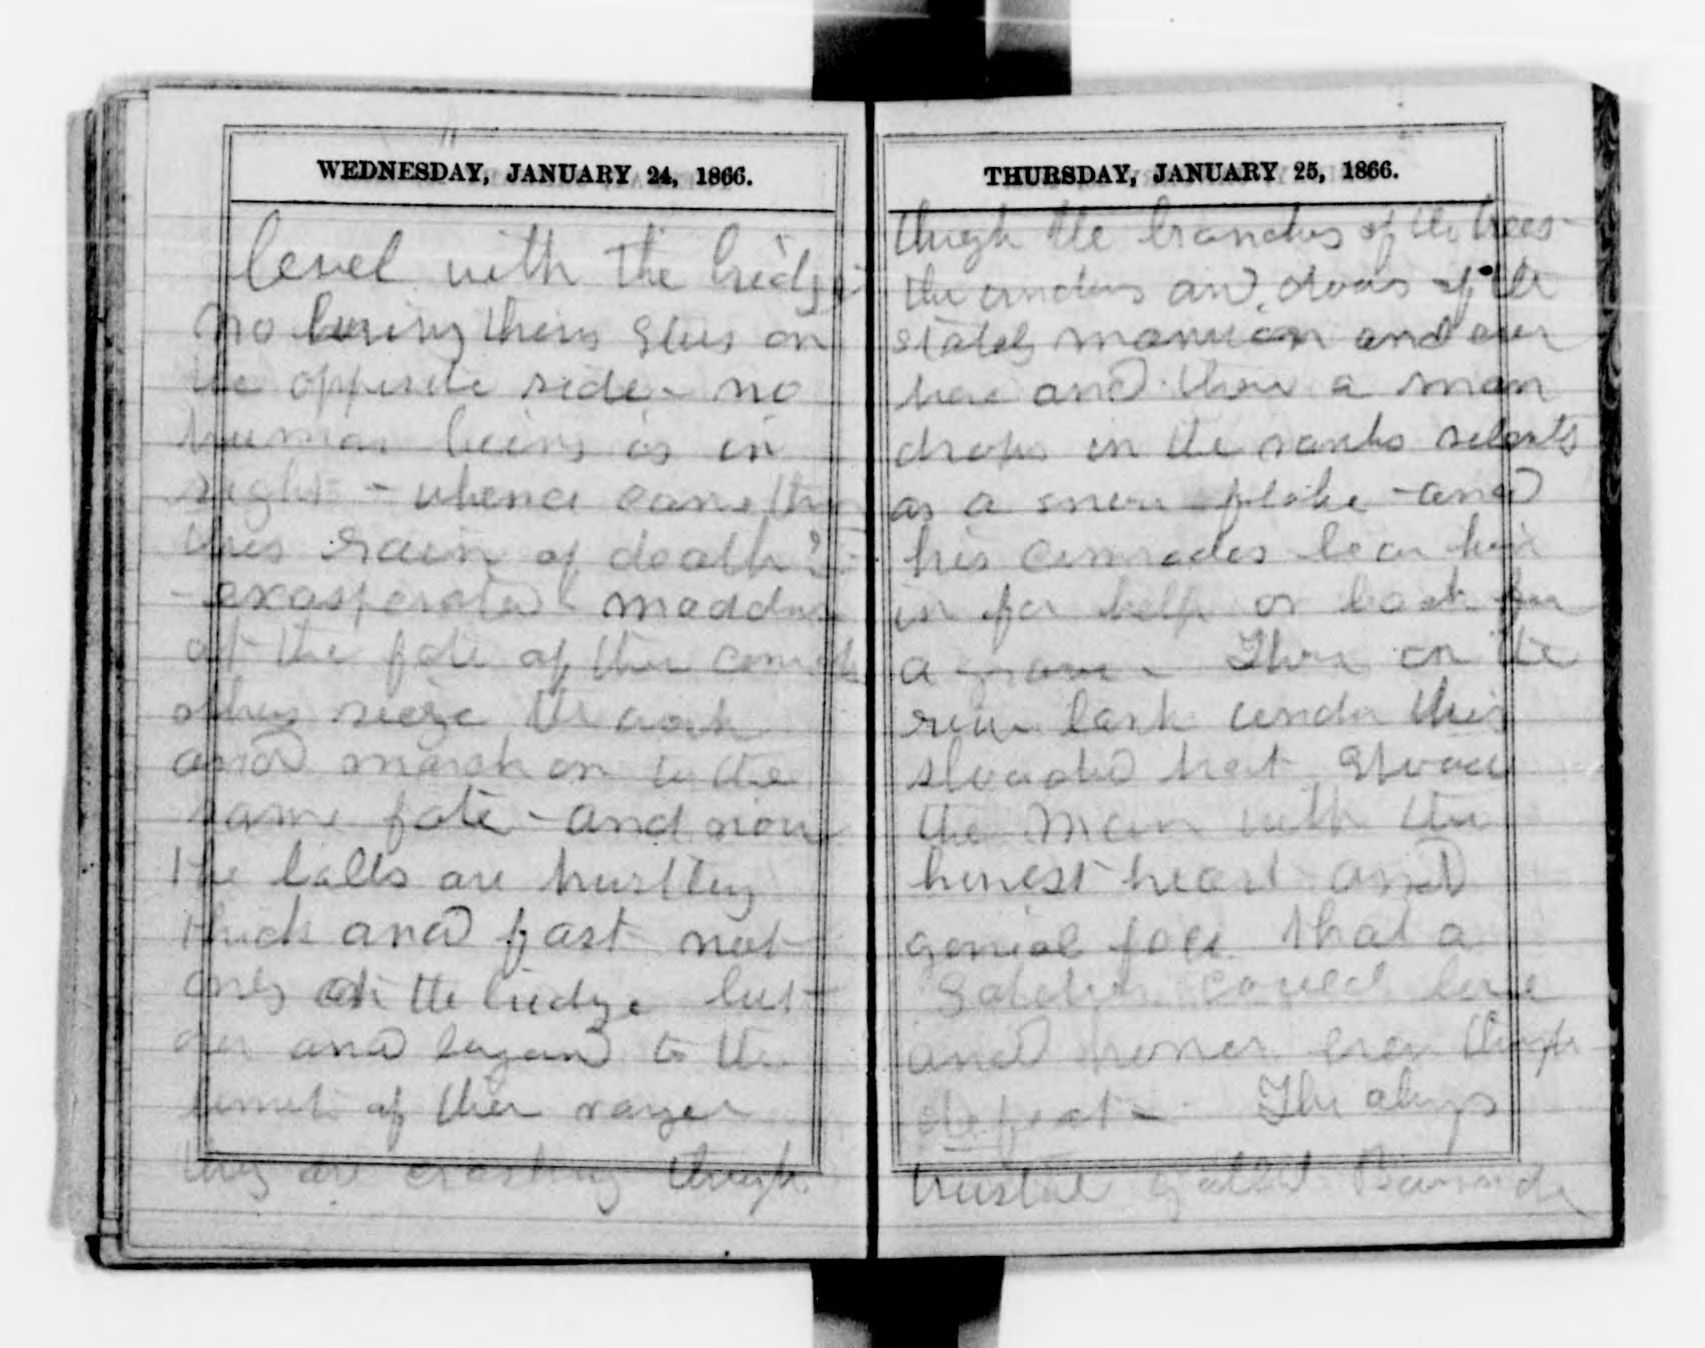 WEDNESDAY, JANUARY 24, 1866.
level with the bridge
no living thing on
the opposite side - no
human being is in
sight - whence came then
this rain of death? -
- exasperated & maddened
at the fate of their comrads
others seize the work
and march on to the
same fate - and now
the balls are hurtling
thick and fast not
only at the bridge but
over and beyond to the
limit of their range
they are crashing through
THURSDAY, JANUARY 25, 1866.
through the branches of the trees -
the windows and doors of the
stately mansion and ever
here and there a man
drops in the ranks silently
as a snow flake - and
his comrades bear him
in for help or back for
a grave - There on the
river bank under this
slouched hat stood
the man with the
honest heart and
genial face that a
Soldier could love
and honor even through
defeat - The always
trusted gallant Burnside